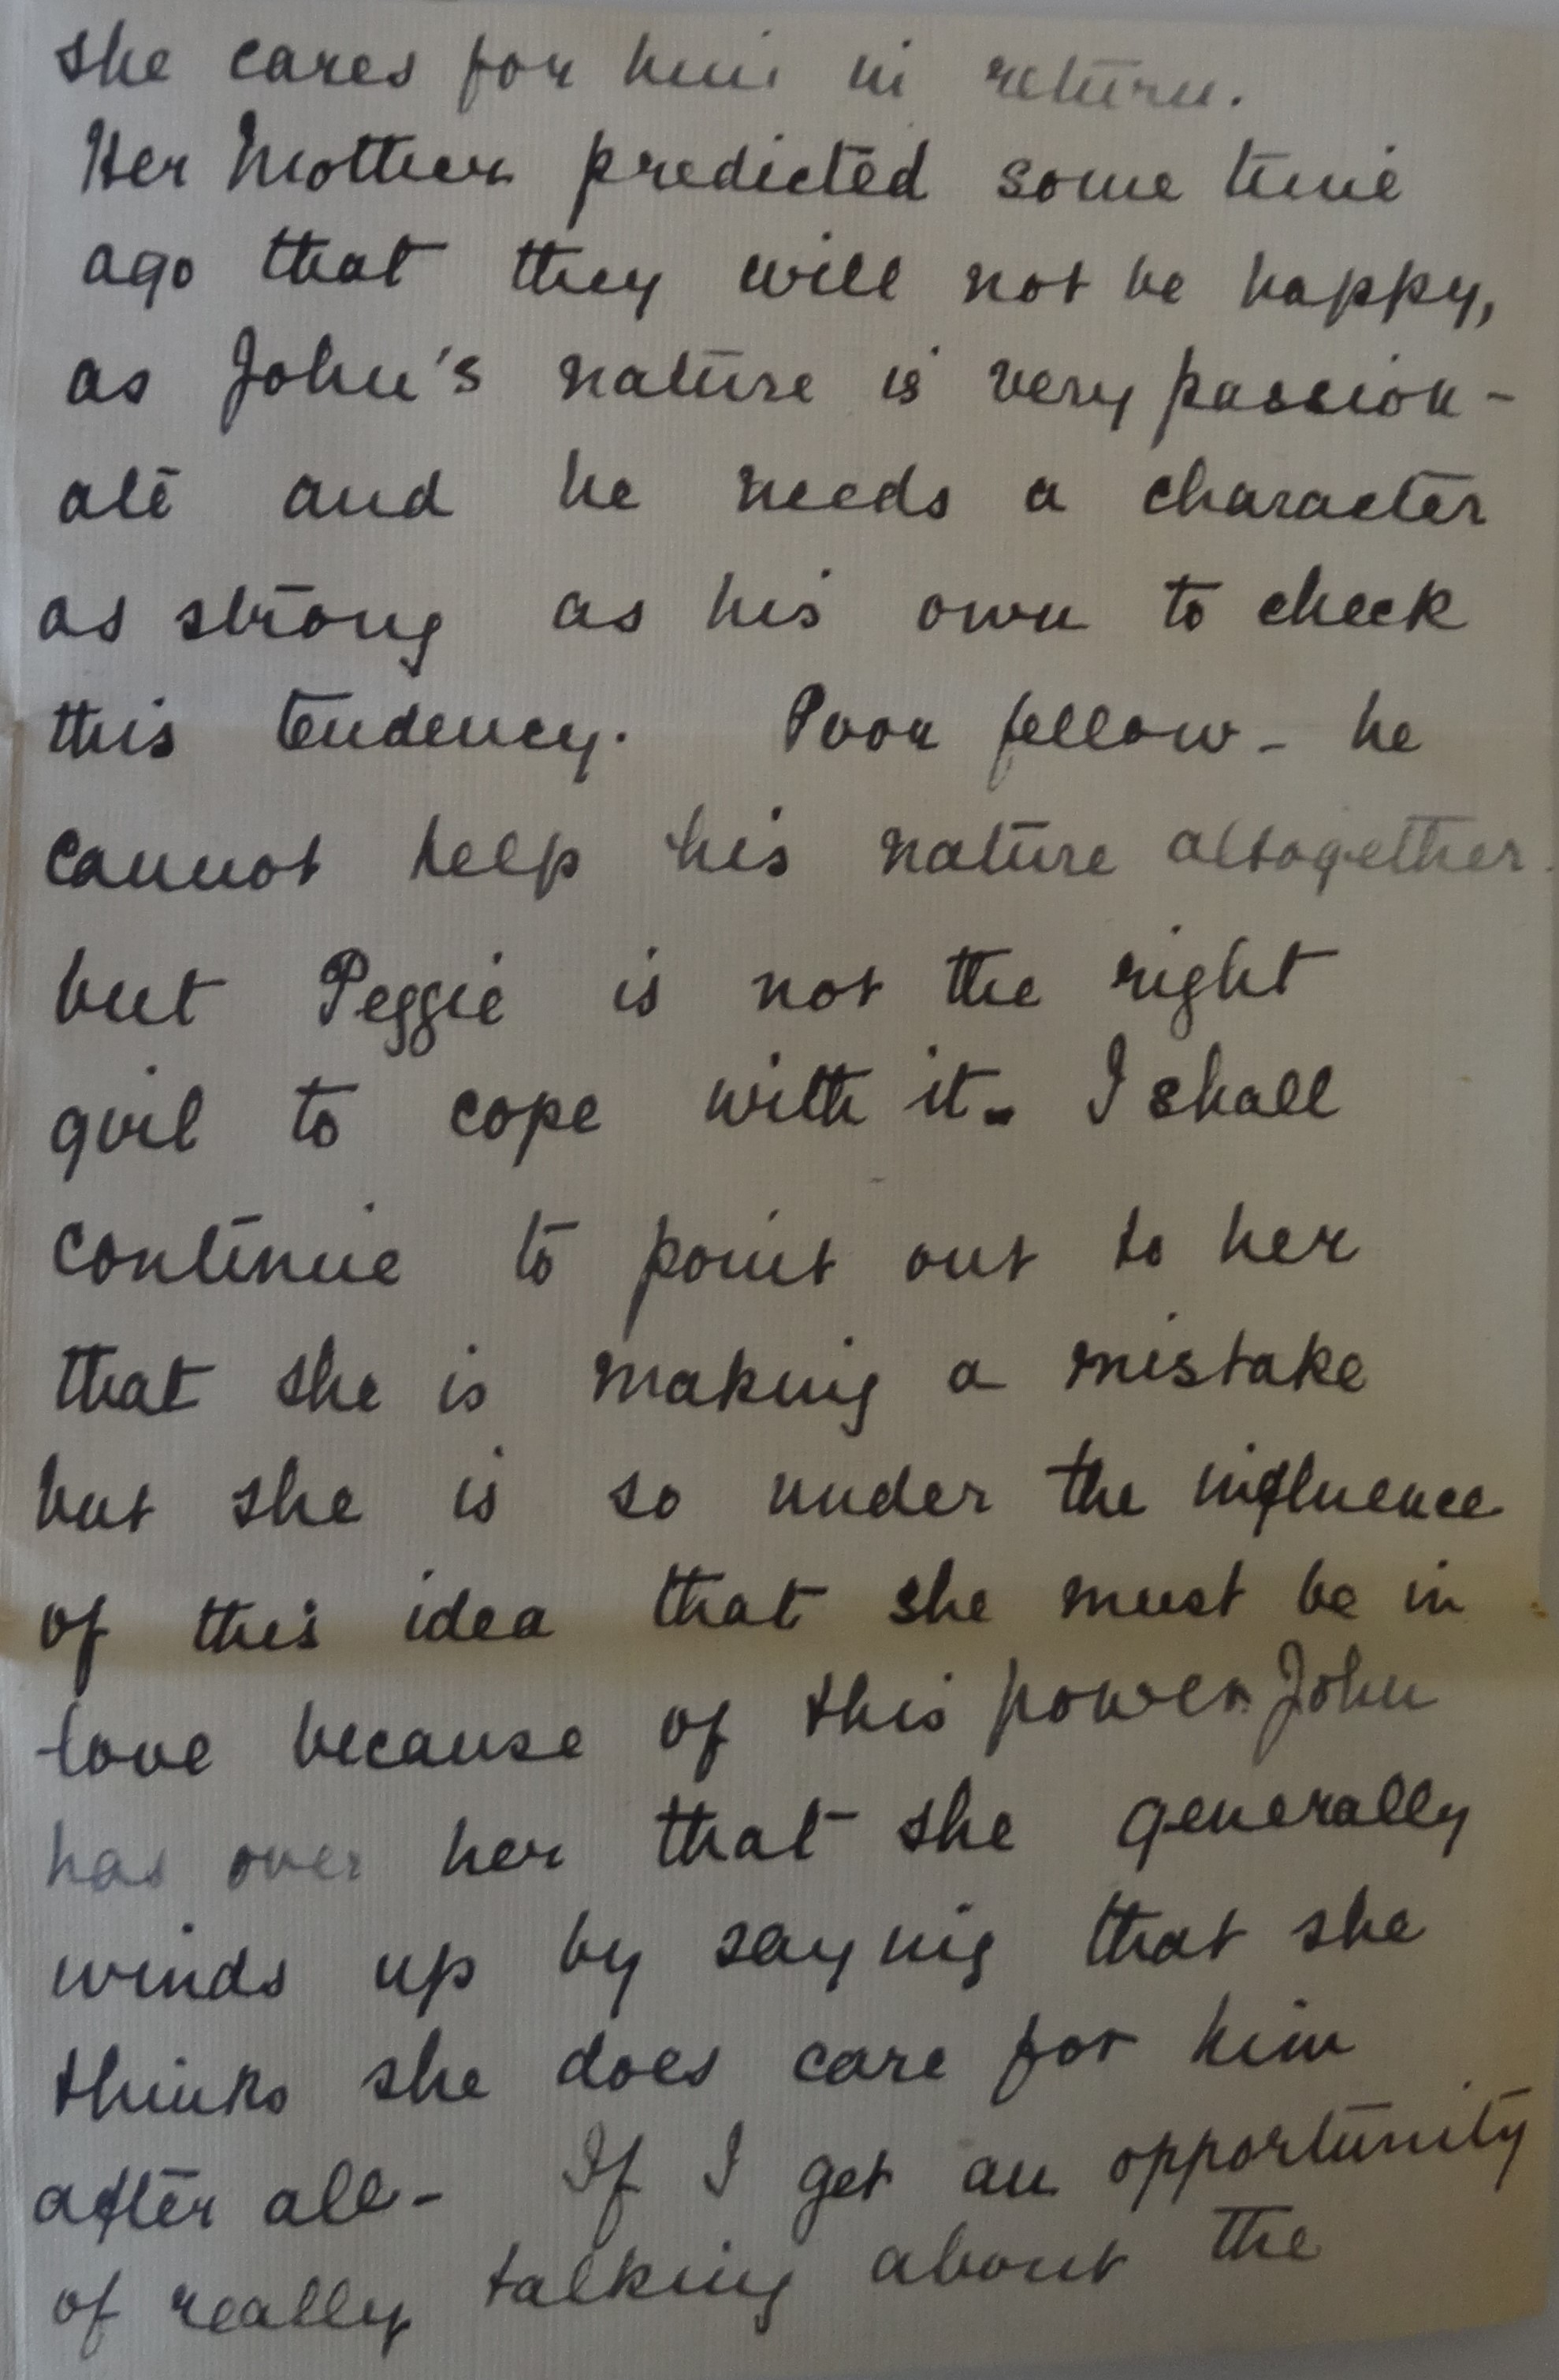 she cares for him in return.
Her Mother predicted some time
ago that they will not be happy,
as John's nature is very passion-
ate and he needs a character
as strong as his own to check
this tendency. Poor fellow - he
cannot help his nature altogether.
but Peggie is not the right
girl to cope with it. I shall
continue to point out to her
that she is making a mistake
but she is so under the influence
of this idea that she must be in
love because of this power John
has over her that she generally
winds up by saying that she
thinks she does care for him
after all - If I get an opportunity
of really talking about the